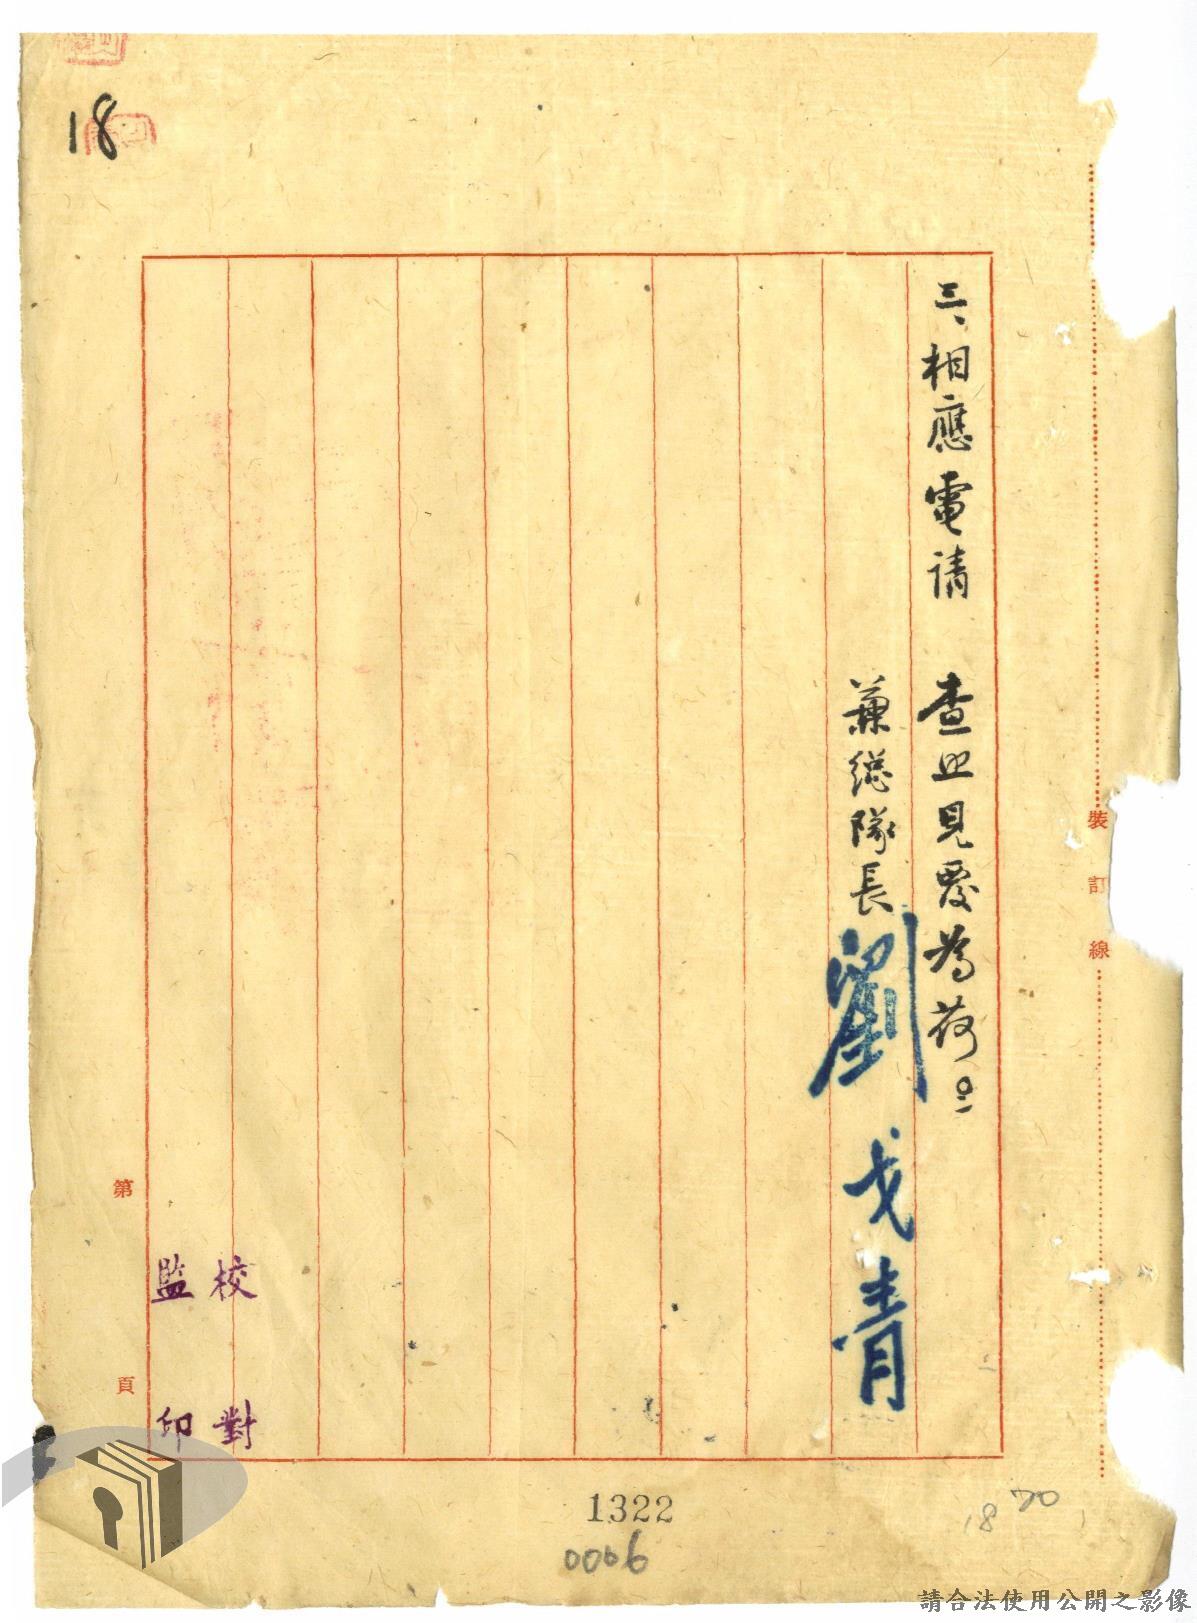 三、相應電請 查照見覆為荷
兼總隊長劉戈青
校對
監印
裝訂線
第 頁
18
1322
0006
18 20
請合法使用公開之影像